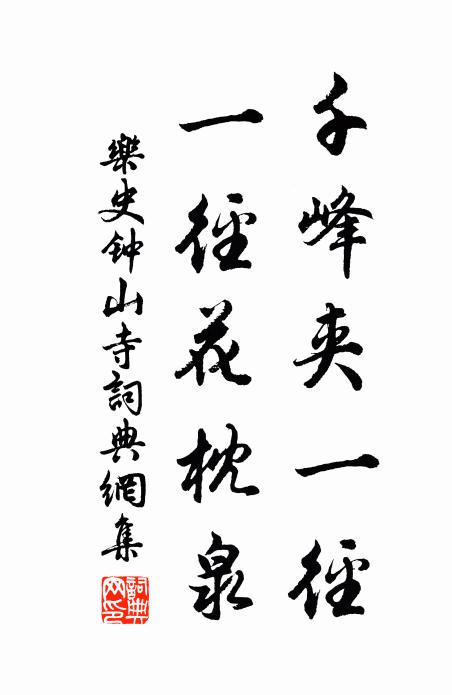 千峰夾一徑
一徑花枕泉
樂史钟山寺詞典網集
詞典網印